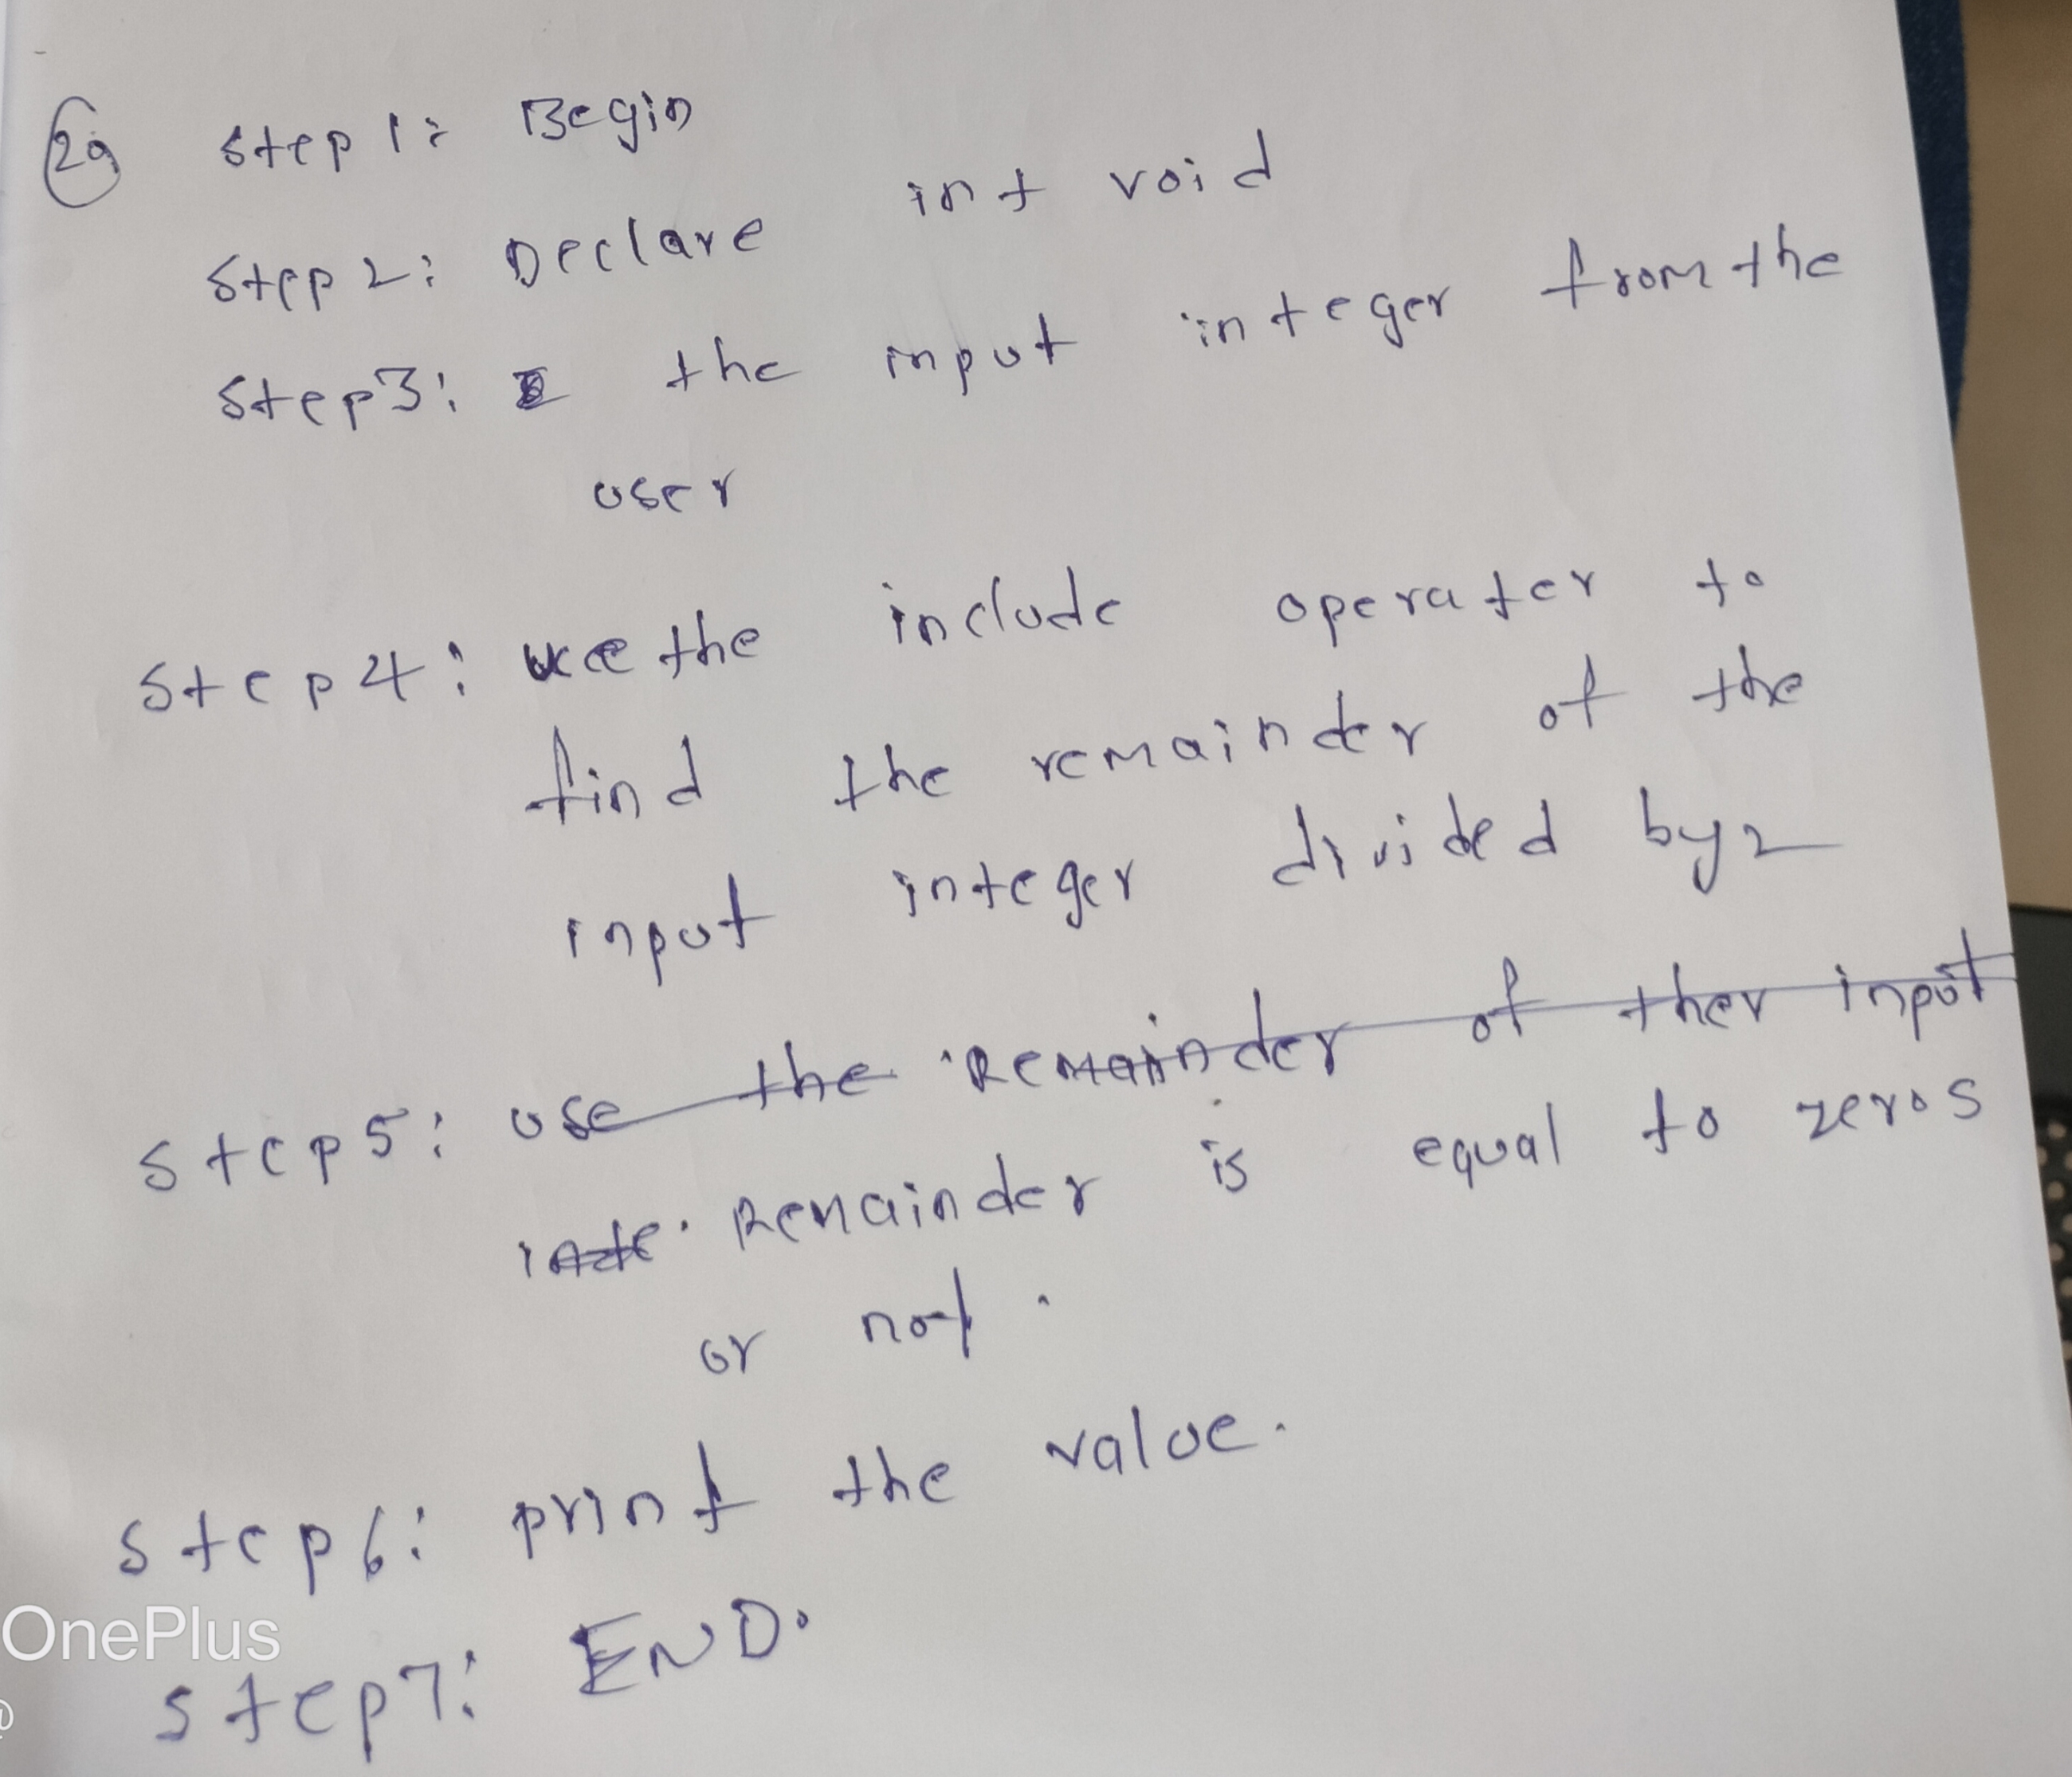 2a step 1: Begin
step 2: Declare int void
step3: the input integer from the
user
step4: use the include operater to
find the remainder of the
input integer divided by 2
step5: use the Remainder of ther input
inte. Remainder is equal to zeros
or not.
step6: print the value.
step7: END.
OnePlus
@